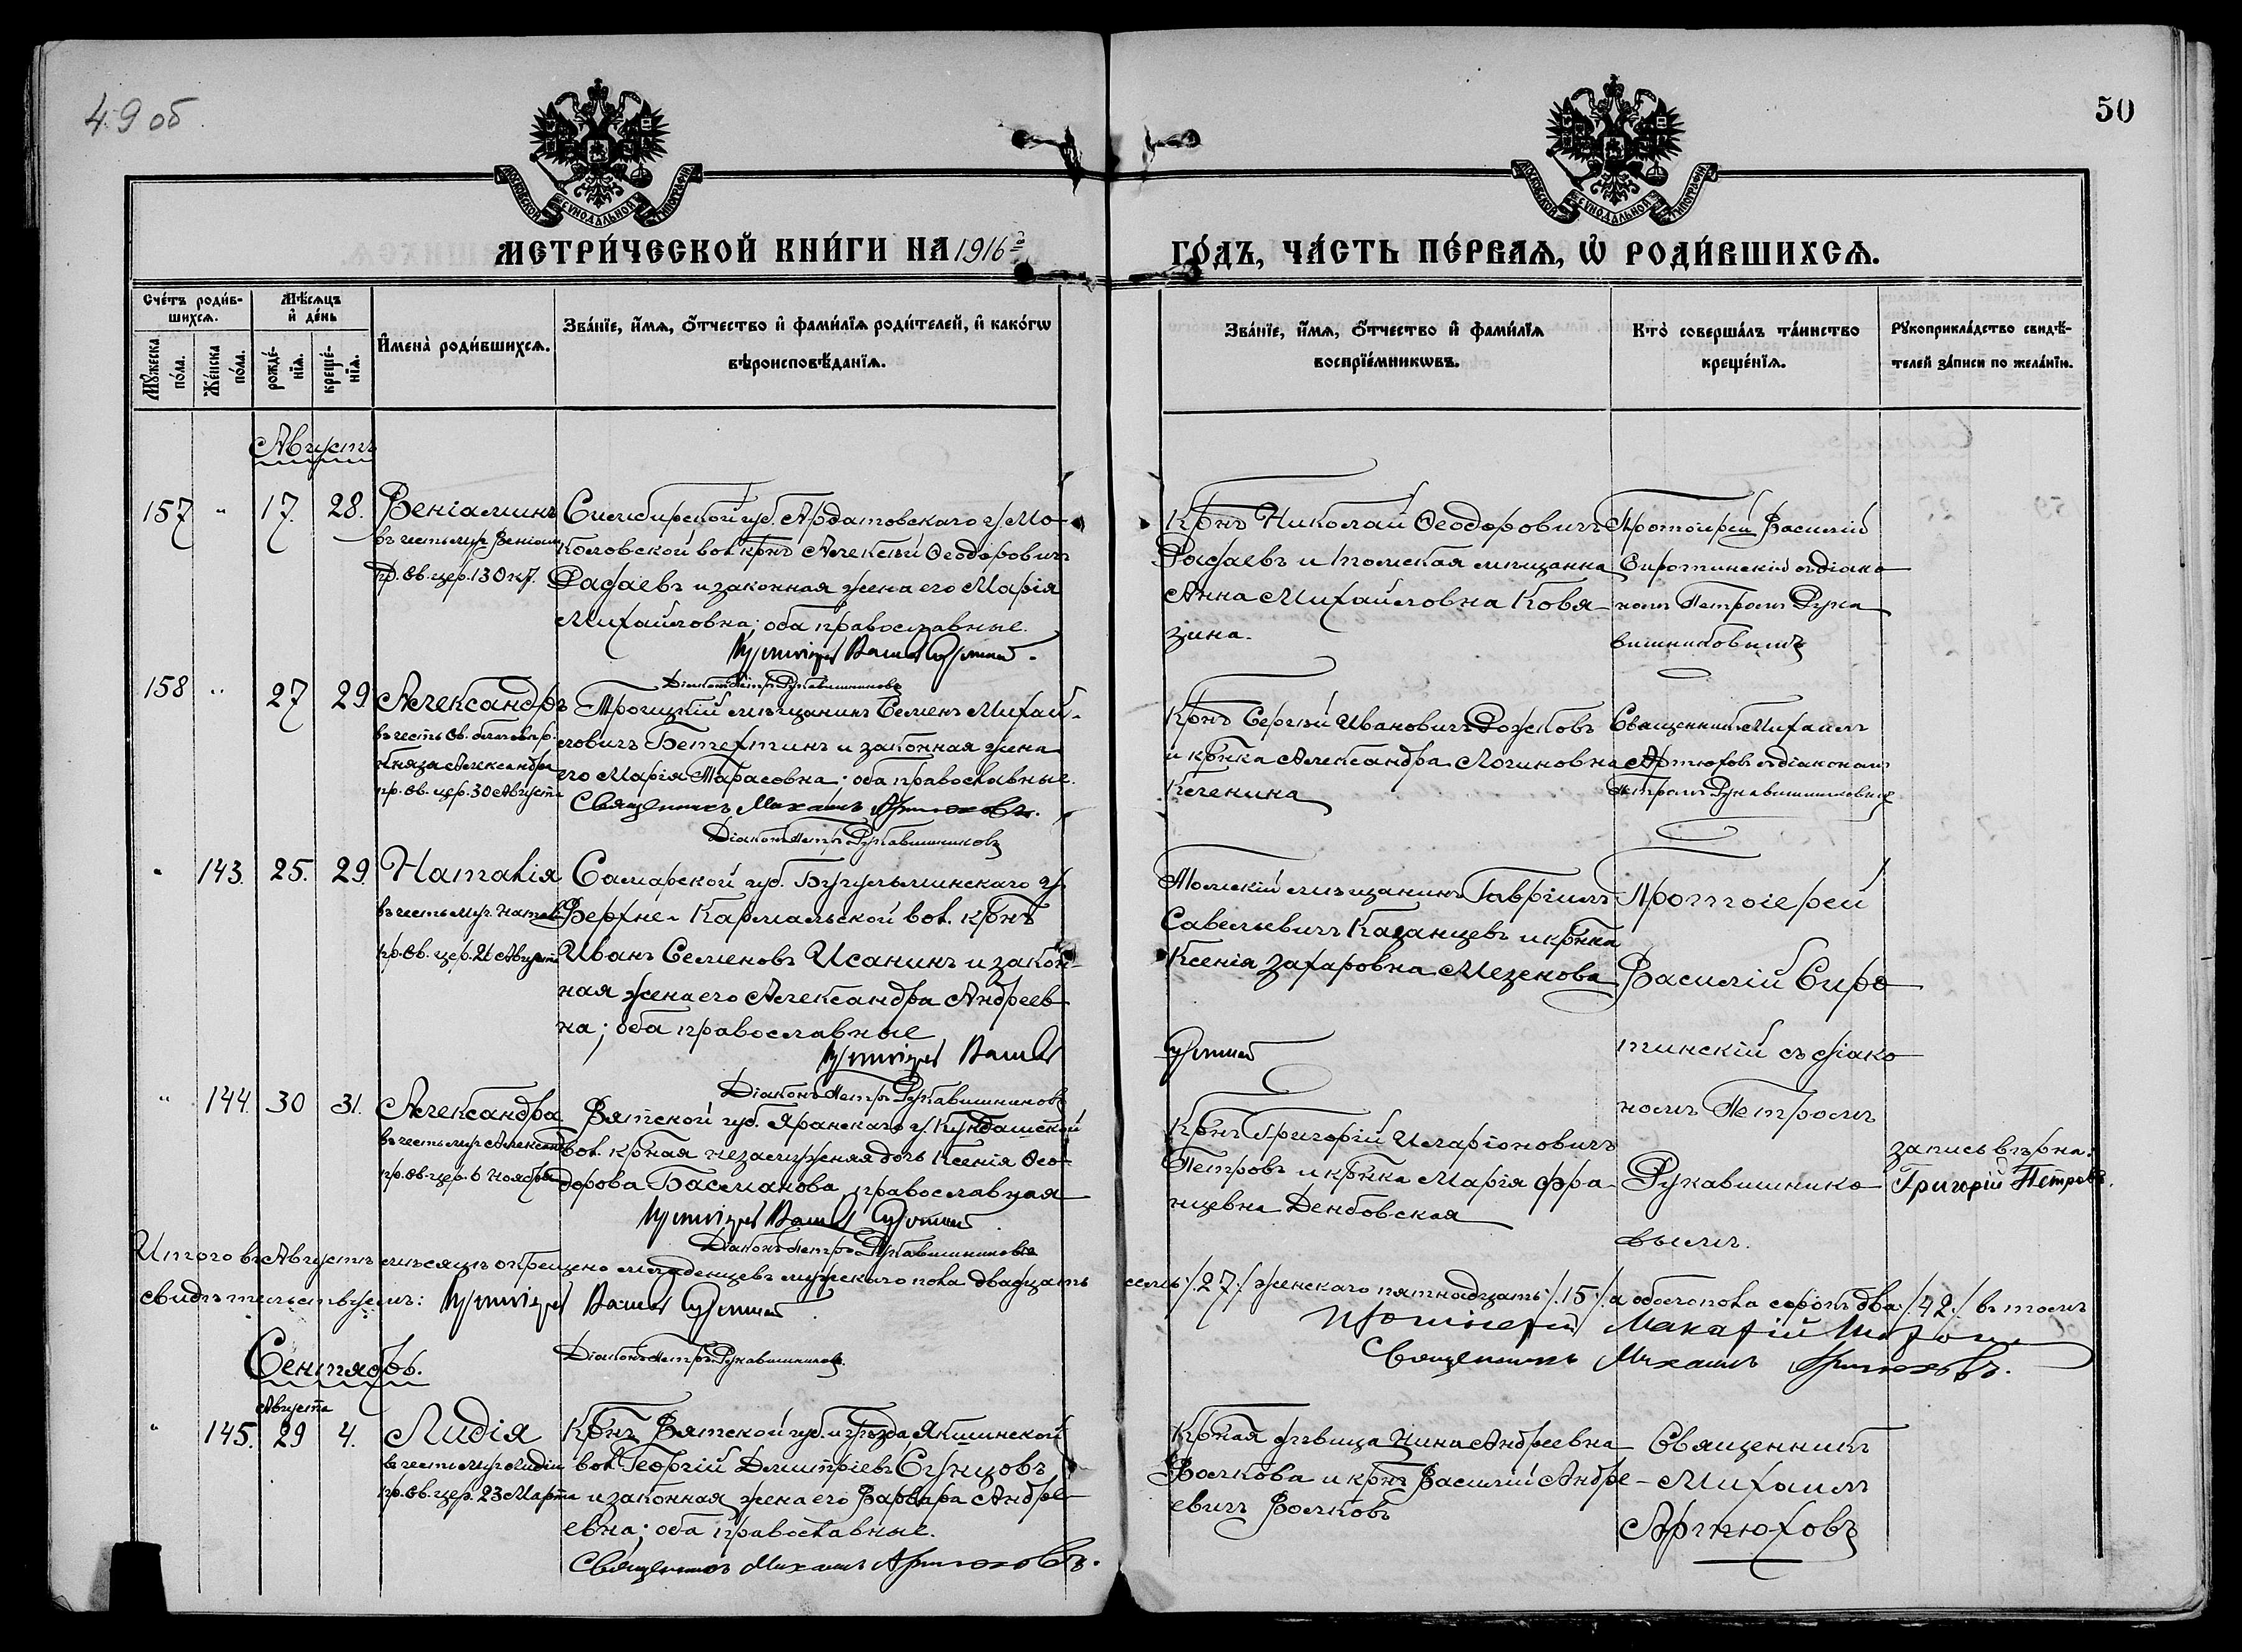 49 об
50
МОСКОВСКОЙ СѴНОДАЛЬНОЙ ТИПОГРАФІИ
МОСКОВСКОЙ СѴНОДАЛЬНОЙ ТИПОГРАФІИ
МЕТРИ́ЧЕСКОЙ КНИ́ГИ НА 1916 й
ГО́ДЪ, ЧА́СТЬ ПЕ́РВАѦ, Ѡ҆ РОДИ́ВШИХСѦ.
Сче́тъ роди́в-
шихсѧ.
Мѣ́сѧцъ
и҆ де́нь
Мꙋ́жеска
по́ла.
Же́нска
по́ла.
рожде́-
нїѧ.
креще́-
нїѧ.
И҆мена̀ роди́вшихсѧ.
Зва́нїе, и҆́мѧ, ѻ҆́тчество и҆ фами́лїѧ роди́телей, и҆ како́гѡ
вѣроисповѣ́данїѧ.
Зва́нїе, и҆́мѧ, ѻ҆́тчество и҆ фами́лїѧ
воспрїе́мникѡвъ.
Кто̀ соверша́лъ та́инство
креще́нїѧ.
Рꙋкоприкла́дство свидѣ́-
телей за́писи по жела́нїю.
Августъ
157 " 17. 28. Веніаминъ
въ честь муч. Веніами
пр. св. цер. 13 Окт.
Симбирской губ. Ардатовскаго у. Мо-
коловской вол. крнъ Алексѣй Ѳеодоровичъ
Расаевъ и законная жена его Марія
Михайловна; оба православные.
Протоіерей Василій Сиротинскій
Діаконъ Петръ Рукавишниковъ
Крнъ Николай Ѳеодоровичъ
Расаевъ и томская мѣщанка
Анна Михайловна Ковя-
зина.
Протоіерей Василій
Сиротинскій съ діако
номъ Петромъ Рука
вишниковымъ
158 " 27 29 Александръ
въ честь св. благовѣр.
князя Александра
пр. св. цер. 30 Августа
Троицкій мѣщанинъ Семенъ Михай-
ловичъ Бетехтинъ и законная жена
его Марія Тарасовна; оба православные.
Священникъ Михаилъ Артюховъ.
Діаконъ Петръ Рукавишниковъ
Крнъ Сергѣй Ивановичъ Рожковъ
и крнка Александра Логиновна
Кеченина
Священникъ Михаилъ
Артюховъ съ діакономъ
Петромъ Рукавишниковымъ
" 143. 25. 29. Наталія
въ честь муч. Натал
пр. св. цер. 26 Августа
Самарской губ. Бугульминскаго у.
Верхне-Кармальской вол. крнъ
Иванъ Семеновъ Исанинъ и закон-
ная жена его Александра Андреев-
на; оба православные
Протоіерей Василій
Сиротинскій
Діаконъ Петръ Рукавишниковъ
Томскій мѣщанинъ Гавріилъ
Савельевичъ Казанцевъ и крнка
Ксенія Захаровна Мезенова
Протоіерей
Василій Сиро
тинскій съ діако
номъ Петромъ
Рукавишнико
вымъ.
" 144. 30 31. Александра
въ честь муч. Александ
пр. св. цер. 6 Ноября
Вятской губ. Яранскаго у. Кундашской
вол. крная незамужняя дочь Ксенія Ѳео-
дорова Басманова, православная
Протоіерей Василій Сиротинскій
Діаконъ Петръ Рукавишниковъ
Крнъ Григорій Иларіоновичъ
Петровъ и крнка Марія Фра-
нцевна Денбовская
запись вѣрна:
Григорій Петровъ.
Итого въ Августѣ мѣсяцѣ окрещено младенцевъ мужескаго пола двадцать семь /27/ женскаго пятнадцать /15/ а обоего пола сорокъ два /42/ въ томъ
свидѣтельствуемъ: Протоіерей Василій Сиротинскій
Діаконъ Петръ Рукавишниковъ.
Протоіерей Макарій
Священникъ Михаилъ Артюховъ.
Сентябрь.
Августа
" 145. 29 4. Лидія
въ честь муч. Лидіи
пр. св. цер. 23 Марта
Крнъ Вятской губ. и уѣзда Якшинской
вол. Георгій Димитріевъ Сунцовъ
и законная жена его Варвара Андре
евна; оба православные.
Священникъ Михаилъ Артюховъ.
Крная дѣвица Нина Андреевна
Волкова и крнъ Василій Андре-
евичъ Волковъ
Священникъ
Михаилъ
Артюховъ